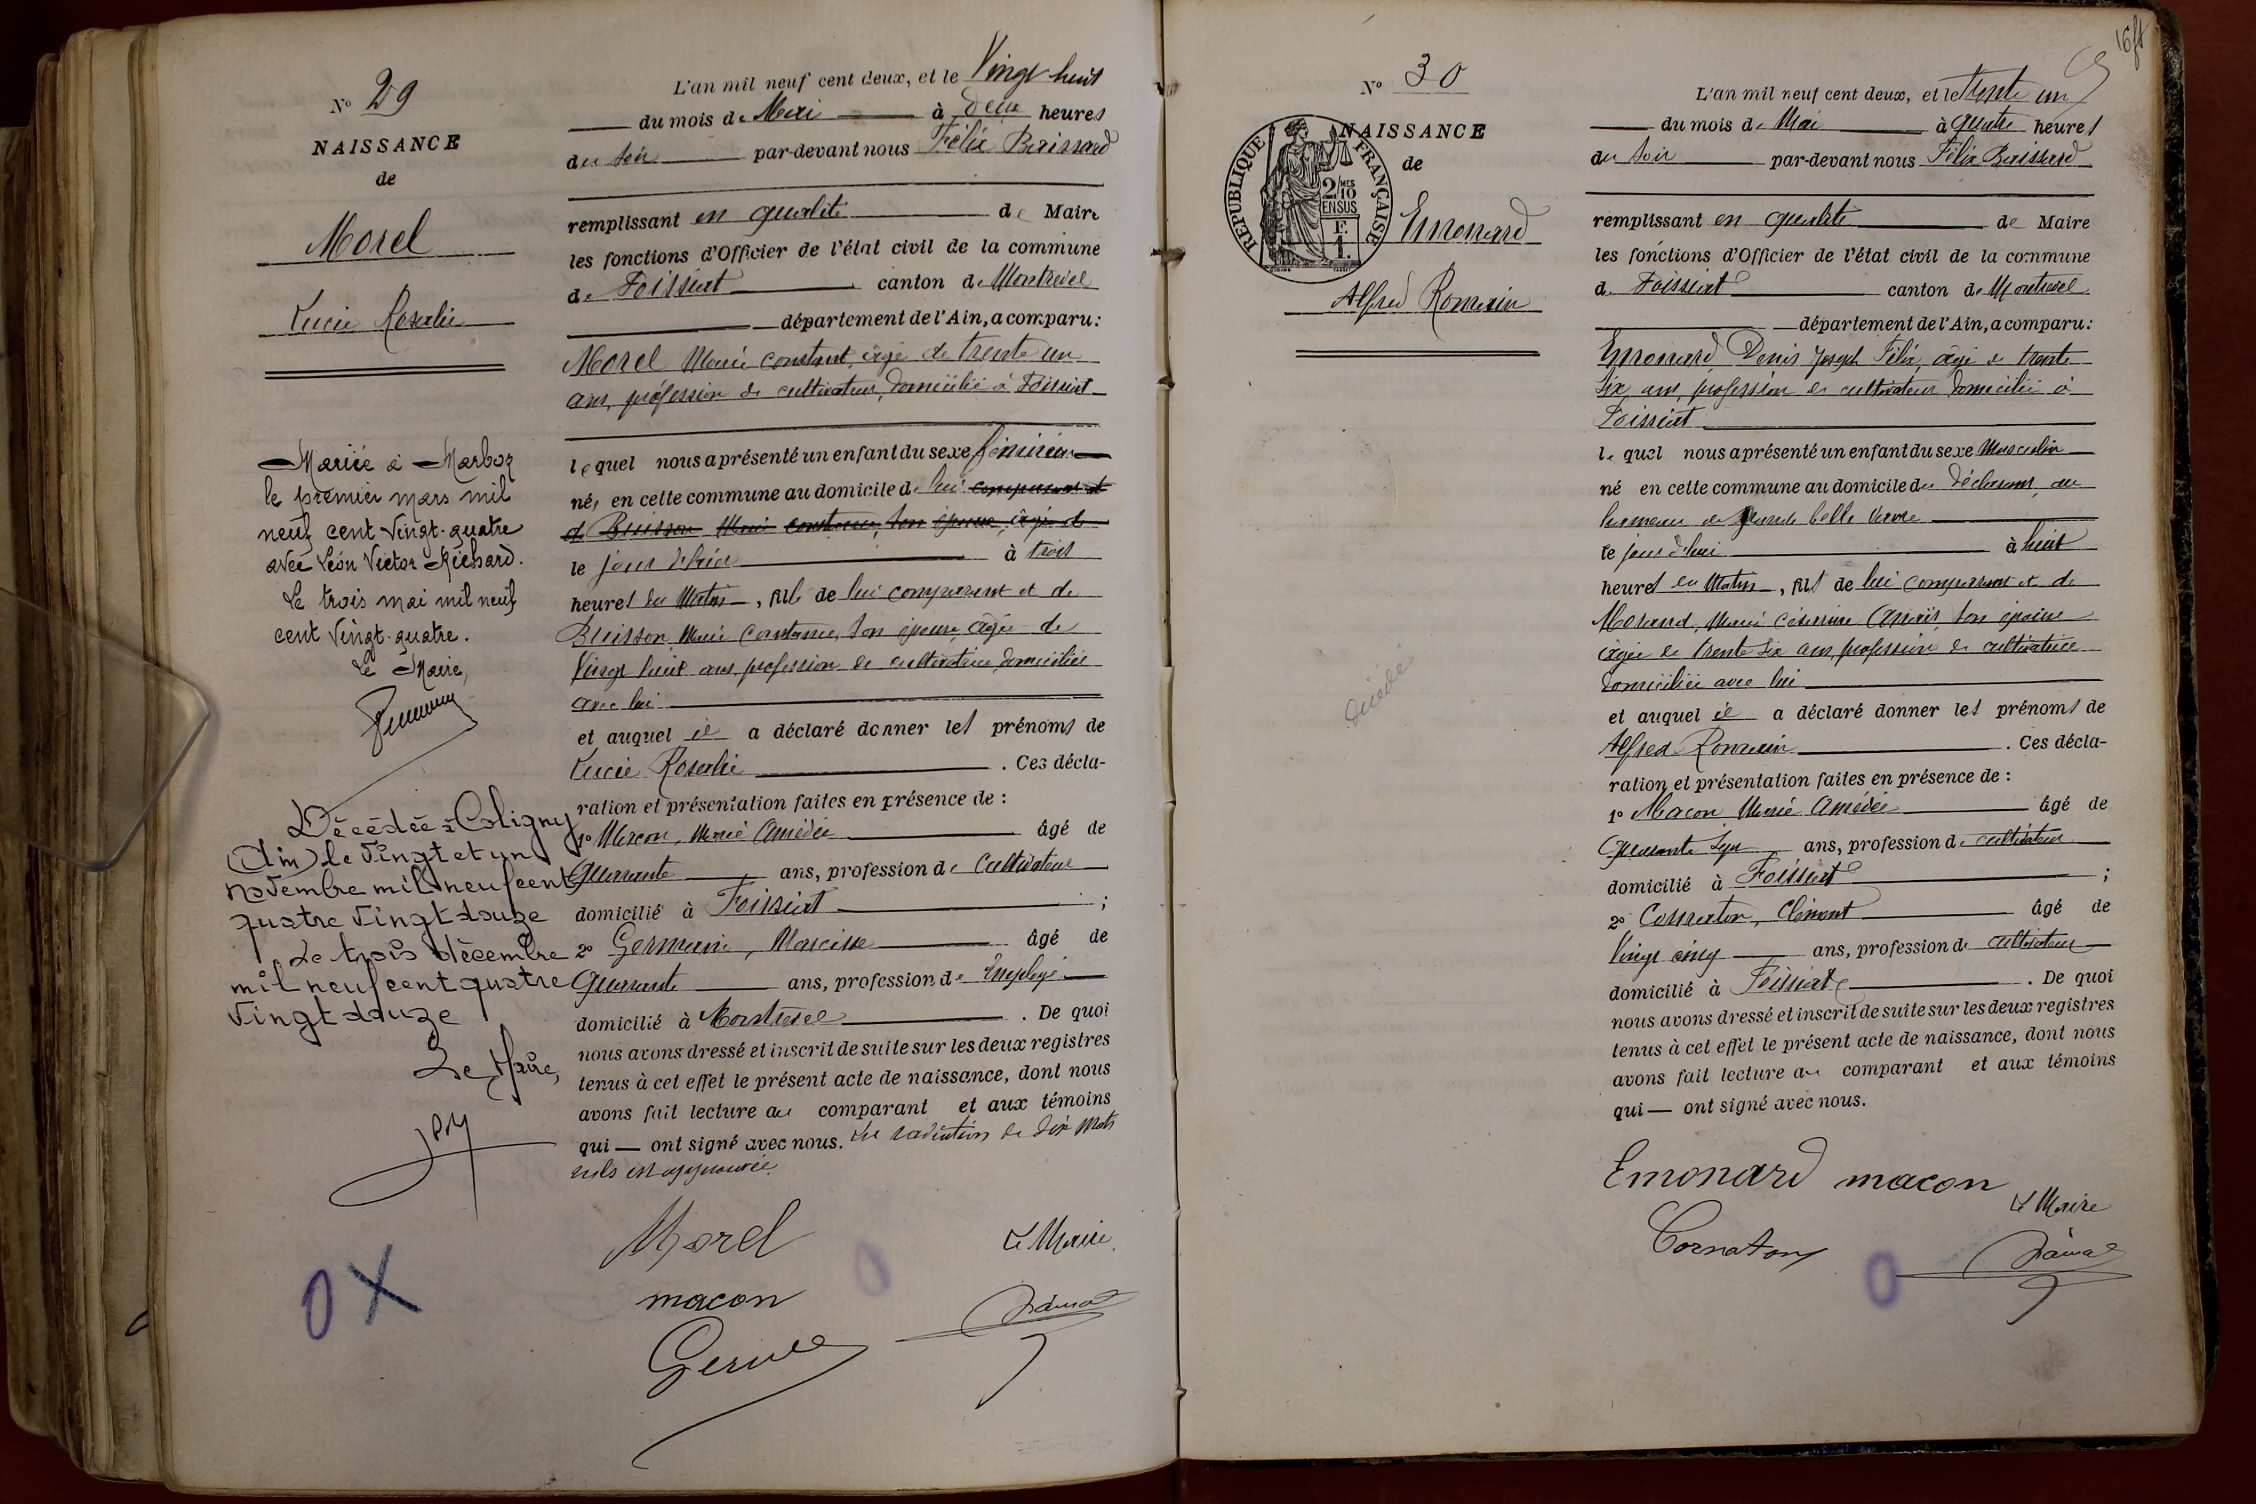 No 29
NAISSANCE
de
Morel
Lucie Rosalie
Mariée à Marboz
le premier mars mil
neuf cent vingt-quatre
avec Léon Victor Michard.
Le trois mai mil neuf
cent vingt-quatre.
Le Maire,
Décédée à Coligny
(Ain) le vingt et un
novembre mil neuf cent
quatre vingt douze
Le trois décembre
mil neuf cent quatre
vingt douze
Le Maire,
L'an mil neuf cent deux, et le Vingt huit
du mois de Mai à deux heures
du soir par-devant nous Félix
remplissant en qualité de Maire
les fonctions d'Officier de l'état civil de la commune
de Foissiat canton de Montrevel
département de l'Ain, a comparu:
Morel Marie constant, âgé de trente un
ans, profession de cultivateur, domicilié à Foissiat
lequel nous a présenté un enfant du sexe féminin
né, en cette commune au domicile de lui comparant et
d Buisson Marie constance, son épouse, âgée de
le jour d'hui à trois
heures du Matin, fils de lui comparant et de
Buisson, Marie Constance, son épouse, âgée de
Vingt huit ans, profession de cultivatrice, domiciliée
avec lui
et auquel il a déclaré donner les prénoms de
Lucie Rosalie . Ces décla-
ration et présentation faites en présence de :
1º Macon, Marie Amédée âgé de
Quarante ans, profession de Cultivateur
domicilié à Foissiat ;
2º Germain, Narcisse âgé de
Quarante ans, profession de Employé
domicilié à Montrevel . De quoi
nous avons dressé et inscrit de suite sur les deux registres
tenus à cet effet le présent acte de naissance, dont nous
avons fait lecture au comparant et aux témoins
qui — ont signé avec nous. La radiation de dix mots
nuls est approuvée.
Morel
Le Maire
macon
No 30
NAISSANCE
de
RÉPUBLIQUE FRANÇAISE
2/10
EN SUS
F.
1.
Emonard
Alfred Romain
décédé
L'an mil neuf cent deux, et le trente un
du mois de Mai à quatre heures
du soir par-devant nous Félix
remplissant en qualité de Maire
les fonctions d'Officier de l'état civil de la commune
d. Foissiat canton de Montrevel
département de l'Ain, a comparu:
Emonard, Denis Joseph Félix, âgé de trente
six ans, profession de cultivateur domicilié à
Foissiat
le quel nous a présenté un enfant du sexe Masculin
né en cette commune au domicile du déclarant, au
hameau de grande belle verne
le jour d'hui à huit
heures du Matin, fils de lui comparant et de
Morand, Marie Césarine Anaïs, son épouse
âgée de trente six ans, profession de cultivatrice
domiciliée avec lui
et auquel il a déclaré donner les prénoms de
Alfred Romain . Ces décla-
ration et présentation faites en présence de :
1º Macon Marie Amédée âgé de
Quarante Sept ans, profession de cultivateur
domicilié à Foissiat ;
2º Cornaton, Clément âgé de
Vingt cinq ans, profession de cultivateur
domicilié à Foissiat . De quoi
nous avons dressé et inscrit de suite sur les deux registres
tenus à cet effet le présent acte de naissance, dont nous
avons fait lecture au comparant et aux témoins
qui — ont signé avec nous.
Emonard macon
Le Maire
Cornaton